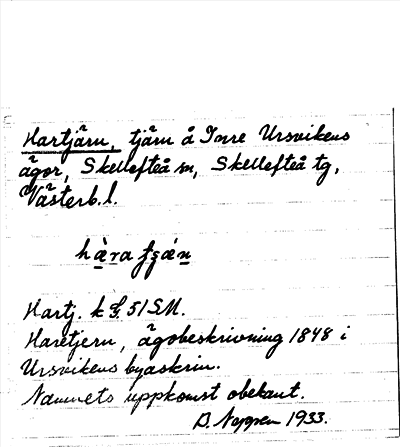 Hartjärn, tjärn å Inre Ursvikens
ägor, Skellefteå sn, Skellefteå tg,
Västerb. l.
hàra
Hartj. k 51 SM.
Haretjern, ägobeskrivning 1848 i
Ursvikens byaskrin.
Namnets uppkomst obekant.
1933.